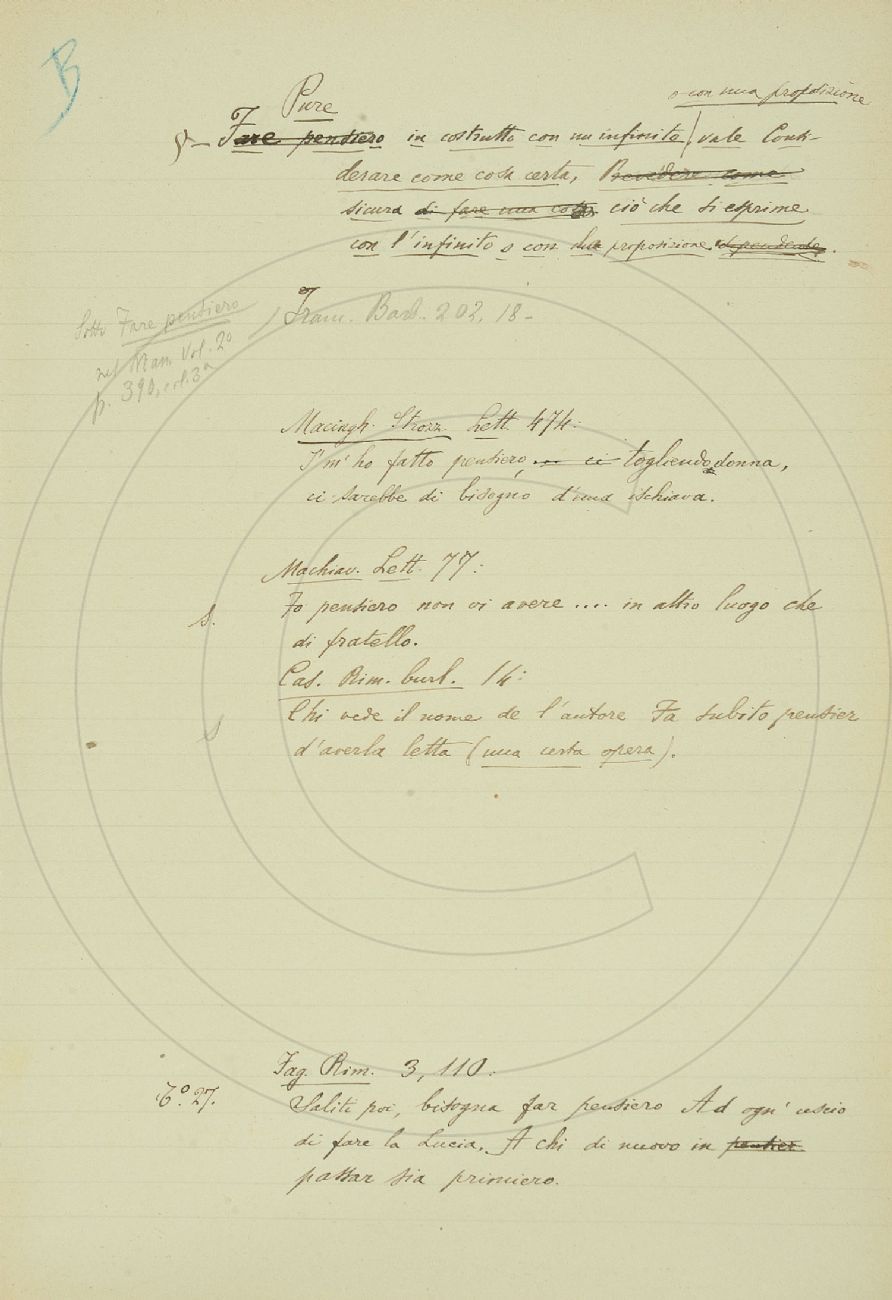 B
Pure
o con una proposizione
§— Fare pensiero in costrutto con un infinito / vale Consi-
derare come cosa certa, Prevedere come
sicura di fare una cosa ciò che si esprime
con l'infinito o con la proposizione dipendente.
Sotto Fare pensiero
nel Man. Vol. 2º
p. 390, col. 3ª
Fram. Barb. 202, 18 -
Macingh. Strozz. Lett. 474:
I' m' ho fatto pensiero, ci togliendo donna,
ci sarebbe di bisogno d'una ischiava.
Machiav. Lett. 77:
S. Fo pensiero non vi avere .... in altro luogo che
di fratello.
Cas. Rim. burl. 14:
S Chi vede il nome de l'autore Fa subito pensier
d'averla letta (una certa opera).
Fag. Rim. 3, 110:
6º. 27. Saliti poi, bisogna far pensiero Ad ogn' uscio
di fare la Lucia, A chi di nuovo in pensier
passar sia primiero.